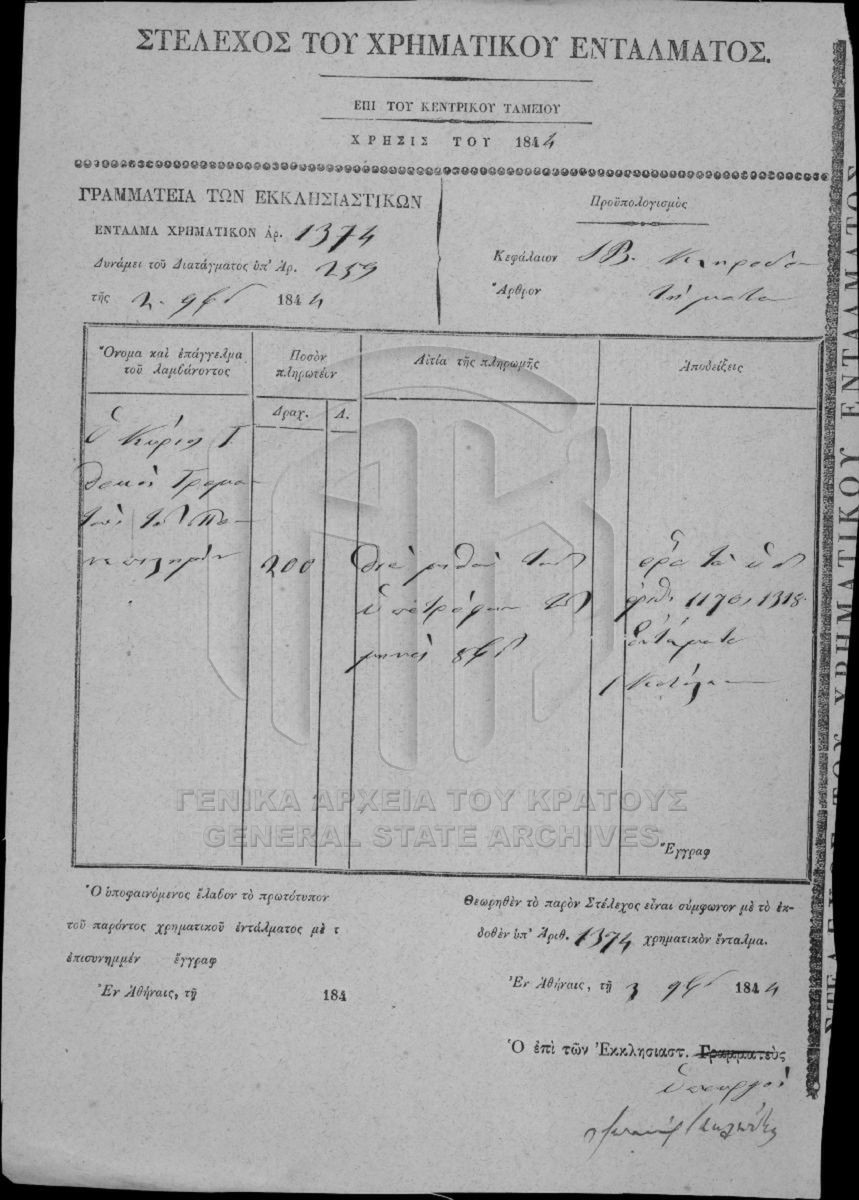 ΣΤΕΛΕΧΟΣ ΤΟΥ ΧΡΗΜΑΤΙΚΟΥ ΕΝΤΑΛΜΑΤΟΣ.
ΕΠΙ ΤΟΥ ΚΕΝΤΡΙΚΟΥ ΤΑΜΕΙΟΥ
ΧΡΗΣΙΣ ΤΟΥ 1844
ΓΡΑΜΜΑΤΕΙΑ ΤΩΝ ΕΚΚΛΗΣΙΑΣΤΙΚΩΝ
ΕΝΤΑΛΜΑ ΧΡΗΜΑΤΙΚΟΝ ἀρ. 1374
Δυνάμει τοῦ Διατάγματος ὑπ' Ἀρ. 259
τῆς 2 9βρ 1844
Προϋπολογισμὸς
Κεφάλαιον ΙΒ. Κληροδο
Ἄρθρον τήματα
Ὄνομα καὶ ἐπάγγελμα
τοῦ λαμβάνοντος
Ποσὸν
πληρωτέον
Αἰτία τῆς πληρωμῆς
Ἀποδείξεις
Δραχ. Λ.
ὁ Κύριος
200
διὰ μισθὸν τοῦ
ὑποτρόφου τοῦ
μηνὸς 8βρ
ὅρα τὰ ὑπ
ἀριθ. 1170, 1318
ἐντάλματα
1
Ἔγγραφ
ΓΕΝΙΚΑ ΑΡΧΕΙΑ ΤΟΥ ΚΡΑΤΟΥΣ
GENERAL STATE ARCHIVES
Ὁ ὑποφαινόμενος ἔλαβον τὸ πρωτότυπον
τοῦ παρόντος χρηματικοῦ ἐντάλματος μὲ τ
ἐπισυνημμέν ἔγγραφ
Ἐν Ἀθήναις, τῇ 184
Θεωρηθὲν τὸ παρὸν Στέλεχος εἶναι σύμφωνον μὲ τὸ ἐκ-
δοθὲν ὑπ' Ἀριθ. 1374 χρηματικὸν ἔνταλμα.
Ἐν Ἀθήναις, τῇ 3 9βρ 1844
Ὁ ἐπὶ τῶν Ἐκκλησιαστ. Γραμματεὺς
ὑπουργὸς
ΣΤΕΛΕΧΟΣ ΤΟΥ ΧΡΗΜΑΤΙΚΟΥ ΕΝΤΑΛΜΑΤΟΣ